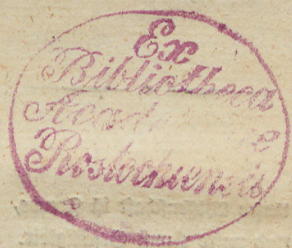 Ex
Bibliotheca
Acad
Rostochiensis